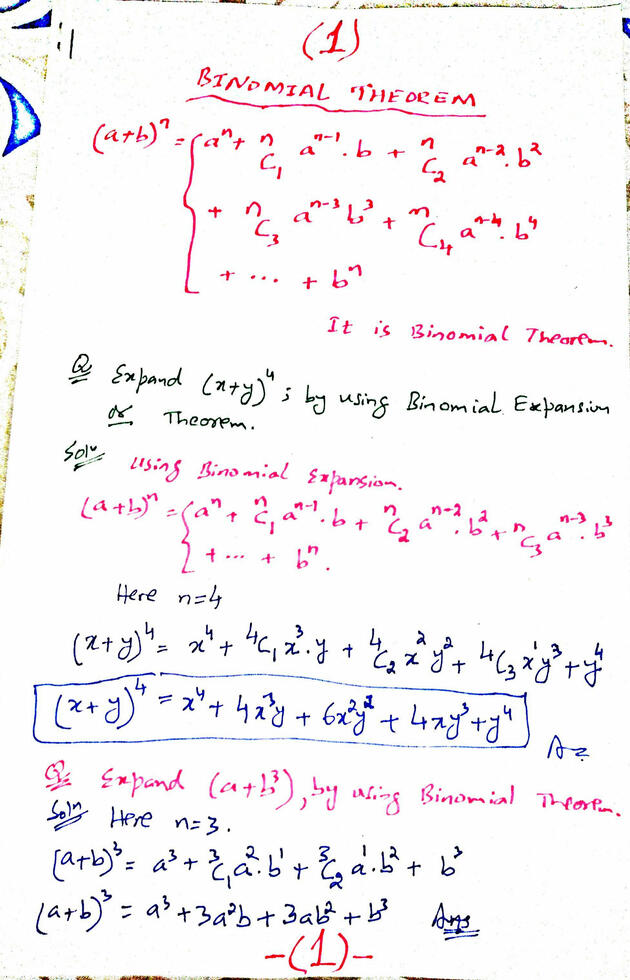 (1)
BINOMIAL THEOREM
(a+b)ⁿ = { aⁿ + ⁿC₁ aⁿ⁻¹.b + ⁿC₂ aⁿ⁻².b²
+ ⁿC₃ aⁿ⁻³ b³ + ⁿC₄ aⁿ⁻⁴.b⁴
+ ... + bⁿ
It is Binomial Theorem.
Q Expand (x+y)⁴; by using Binomial Expansion
or Theorem.
Solⁿ Using Binomial Expansion.
(a+b)ⁿ = { aⁿ + ⁿC₁ aⁿ⁻¹.b + ⁿC₂ aⁿ⁻².b² + ⁿC₃ aⁿ⁻³.b³
+ ... + bⁿ.
Here n=4
(x+y)⁴ = x⁴ + ⁴C₁ x³.y + ⁴C₂ x² y² + ⁴C₃ x¹y³ + y⁴
(x+y)⁴ = x⁴ + 4x³y + 6x²y² + 4xy³ + y⁴
Q. Expand (a+b³), by using Binomial Theorem.
Solⁿ Here n=3.
(a+b)³ = a³ + ³C₁ a².b¹ + ³C₂ a¹.b² + b³
(a+b)³ = a³ + 3a²b + 3ab² + b³ Ans
-(1)-